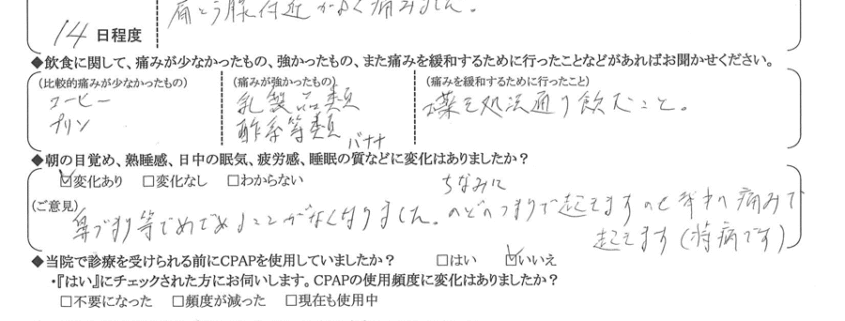 肩とう腺付近がよく痛みました。
14 日程度
◆飲食に関して、痛みが少なかったもの、強かったもの、また痛みを緩和するために行ったことなどがあればお聞かせください。
(比較的痛みが少なかったもの) (痛みが強かったもの) (痛みを緩和するために行ったこと)
コーヒー 乳製品類 薬を処法通り飲むこと。
プリン 酢系等類 バナナ
◆朝の目覚め、熟睡感、日中の眠気、疲労感、睡眠の質などに変化はありましたか?
☑変化あり □変化なし □わからない ちなみに
(ご意見) 鼻づまり等でめざめることがなくなりました。のどのつまりで起きますのと 痛みで
起きます(持病です)
◆当院で診療を受けられる前にCPAPを使用していましたか? □はい ☑いいえ
・『はい』にチェックされた方にお伺いします。CPAPの使用頻度に変化はありましたか?
□不要になった □頻度が減った □現在も使用中